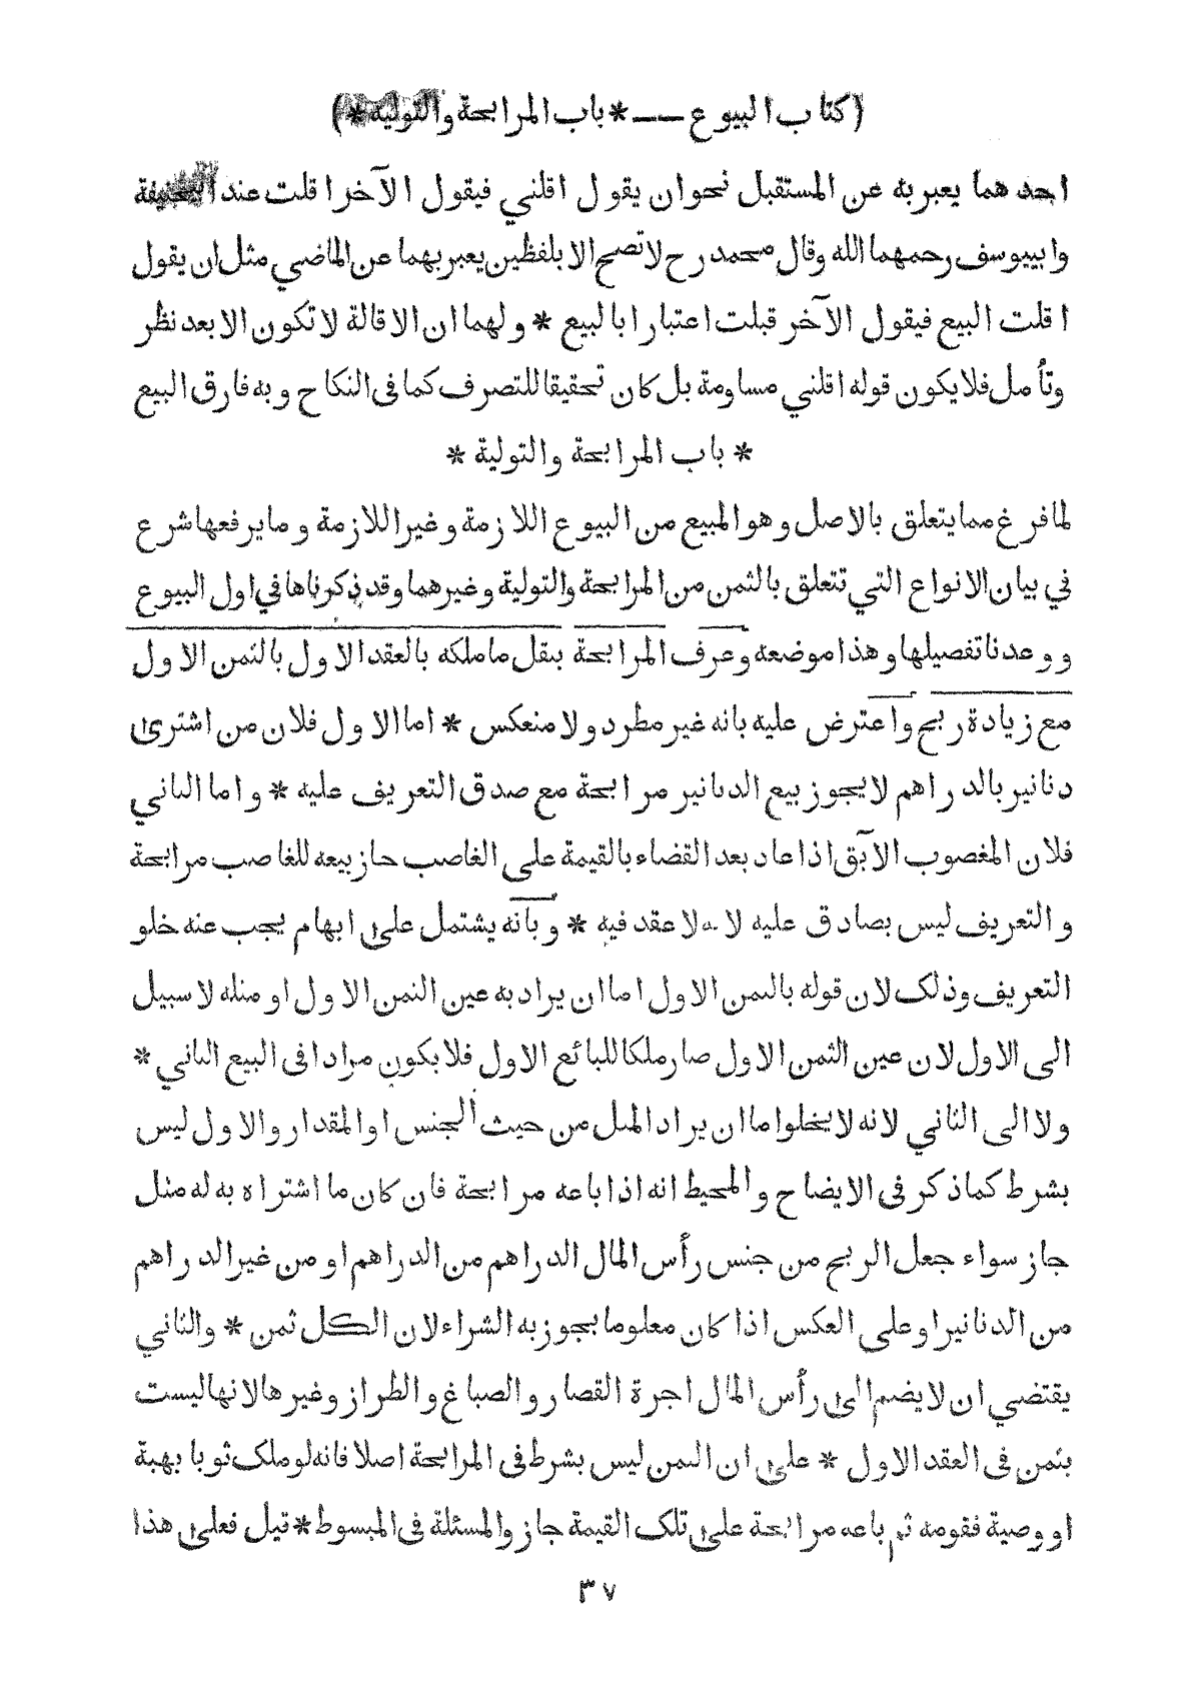 (كتاب البيوع ــــ * باب المرابحة والتولية *)
احدهما يعبر به عن المستقبل نحو ان يقول اقلني فيقول الآخر اقلت عند ابيحنيفة
وابييوسف رحمهما الله وقال محمد رح لا تصح الا بلفظين يعبر بهما عن الماضي مثل ان يقول
اقلت البيع فيقول الآخر قبلت اعتبارا بالبيع * ولهما ان الاقالة لا تكون الا بعد نظر
وتأمل فلا يكون قوله اقلني مساومة بل كان تحقيقا للتصرف كما فى النكاح وبه فارق البيع
* باب المرابحة والتولية *
لما فرغ مما يتعلق بالاصل وهو المبيع من البيوع اللازمة وغير اللازمة وما يرفعها شرع
في بيان الانواع التي تتعلق بالثمن من المرابحة والتولية وغيرهما وقد ذكرناها في اول البيوع
ووعدنا تفصيلها وهذا موضعه وعرف المرابحة بنقل ما ملكه بالعقد الاول بالثمن الاول
مع زيادة ربح واعترض عليه بانه غير مطرد ولا منعكس * اما الاول فلان من اشترى
دنانير بالدراهم لا يجوز بيع الدنانير مرابحة مع صدق التعريف عليه * واما الثاني
فلان المغصوب الآبق اذا عاد بعد القضاء بالقيمة على الغاصب جاز بيعه للغاصب مرابحة
والتعريف ليس بصادق عليه لانه لا عقد فيه * وبانه يشتمل على ابهام يجب عنه خلو
التعريف وذلك لان قوله بالثمن الاول اما ان يراد به عين الثمن الاول او مثله لا سبيل
الى الاول لان عين الثمن الاول صار ملكا للبائع الاول فلا يكون مرادا فى البيع الثاني *
ولا الى الثاني لانه لا يخلوا ما ان يراد المثل من حيث الجنس او المقدار والاول ليس
بشرط كما ذكر فى الايضاح والمحيط انه اذا باعه مرابحة فان كان ما اشتراه به له مثل
جاز سواء جعل الربح من جنس رأس المال الدراهم من الدراهم او من غير الدراهم
من الدنانير او على العكس اذا كان معلوما يجوز به الشراء لان الكل ثمن * والثاني
يقتضي ان لا يضم الى رأس المال اجرة القصار والصباغ والطراز وغيرها لانها ليست
بثمن فى العقد الاول * على ان الثمن ليس بشرط فى المرابحة اصلا فانه لو ملك ثوبا بهبة
او وصية فقومه ثم باعه مرابحة على تلك القيمة جاز والمسئلة فى المبسوط * قيل فعلى هذا
٣٧